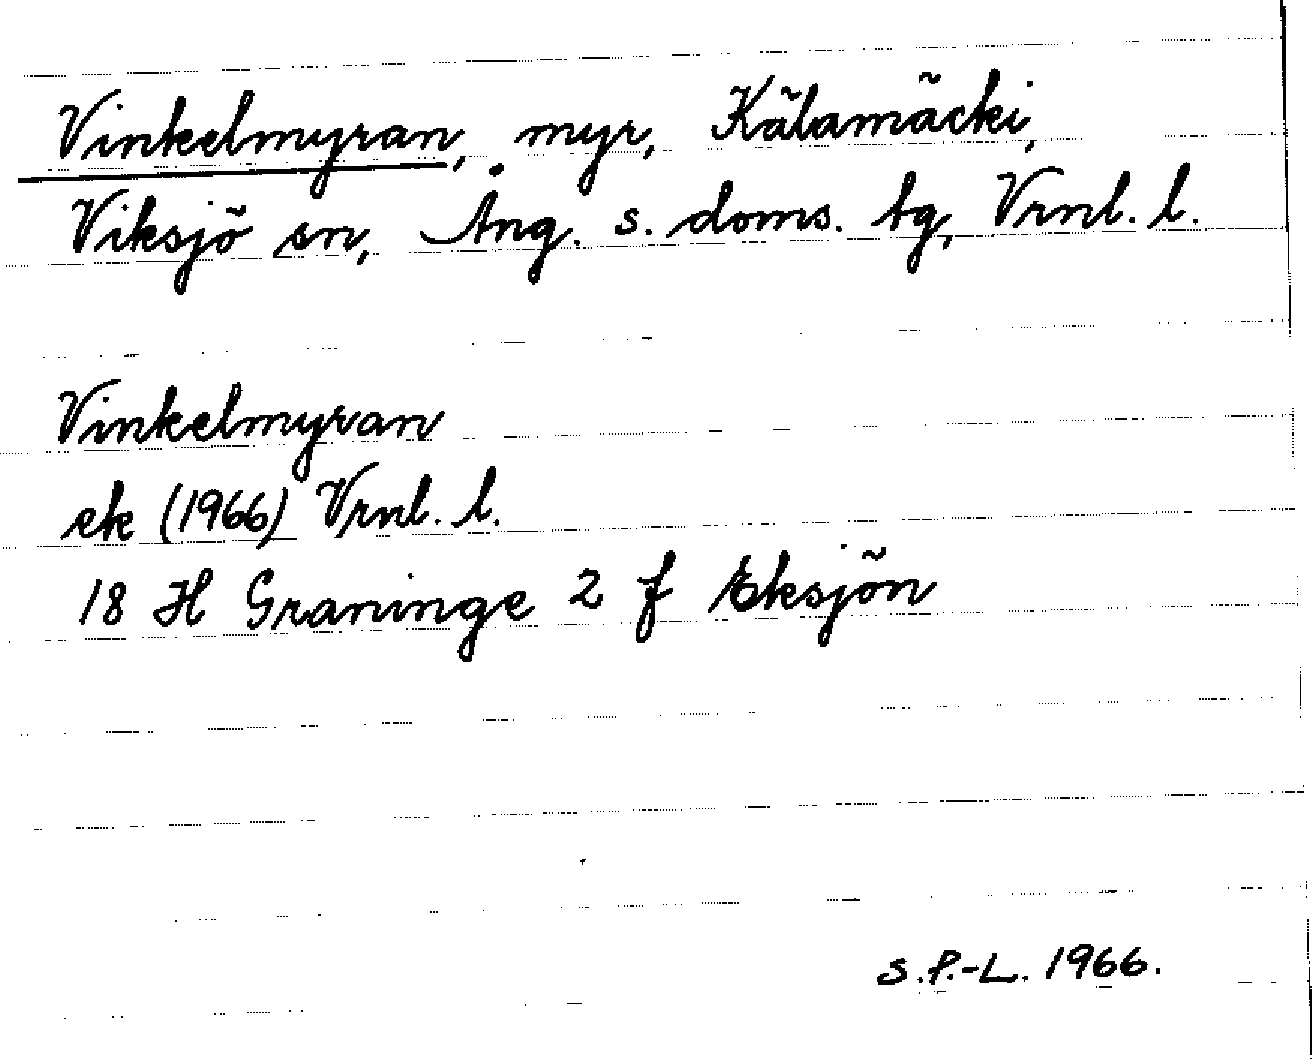 Vinkelmyran, myr, Kälamäcki,
Viksjö sn, Ång. s. doms. tg, Vrnl. l.
Vinkelmyran
ek (1966) Vrnl. l.
18 H Graninge 2 f Eksjön
S.P.-L. 1966.